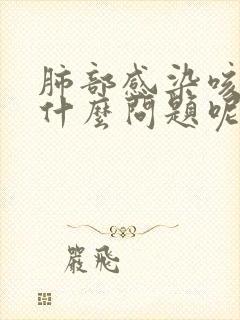 肺部感染咳
什麼問題呢
嚴飛